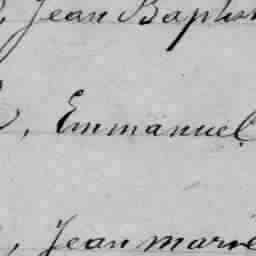 , Jean Baptis
, Emmanuel
, Jean marie